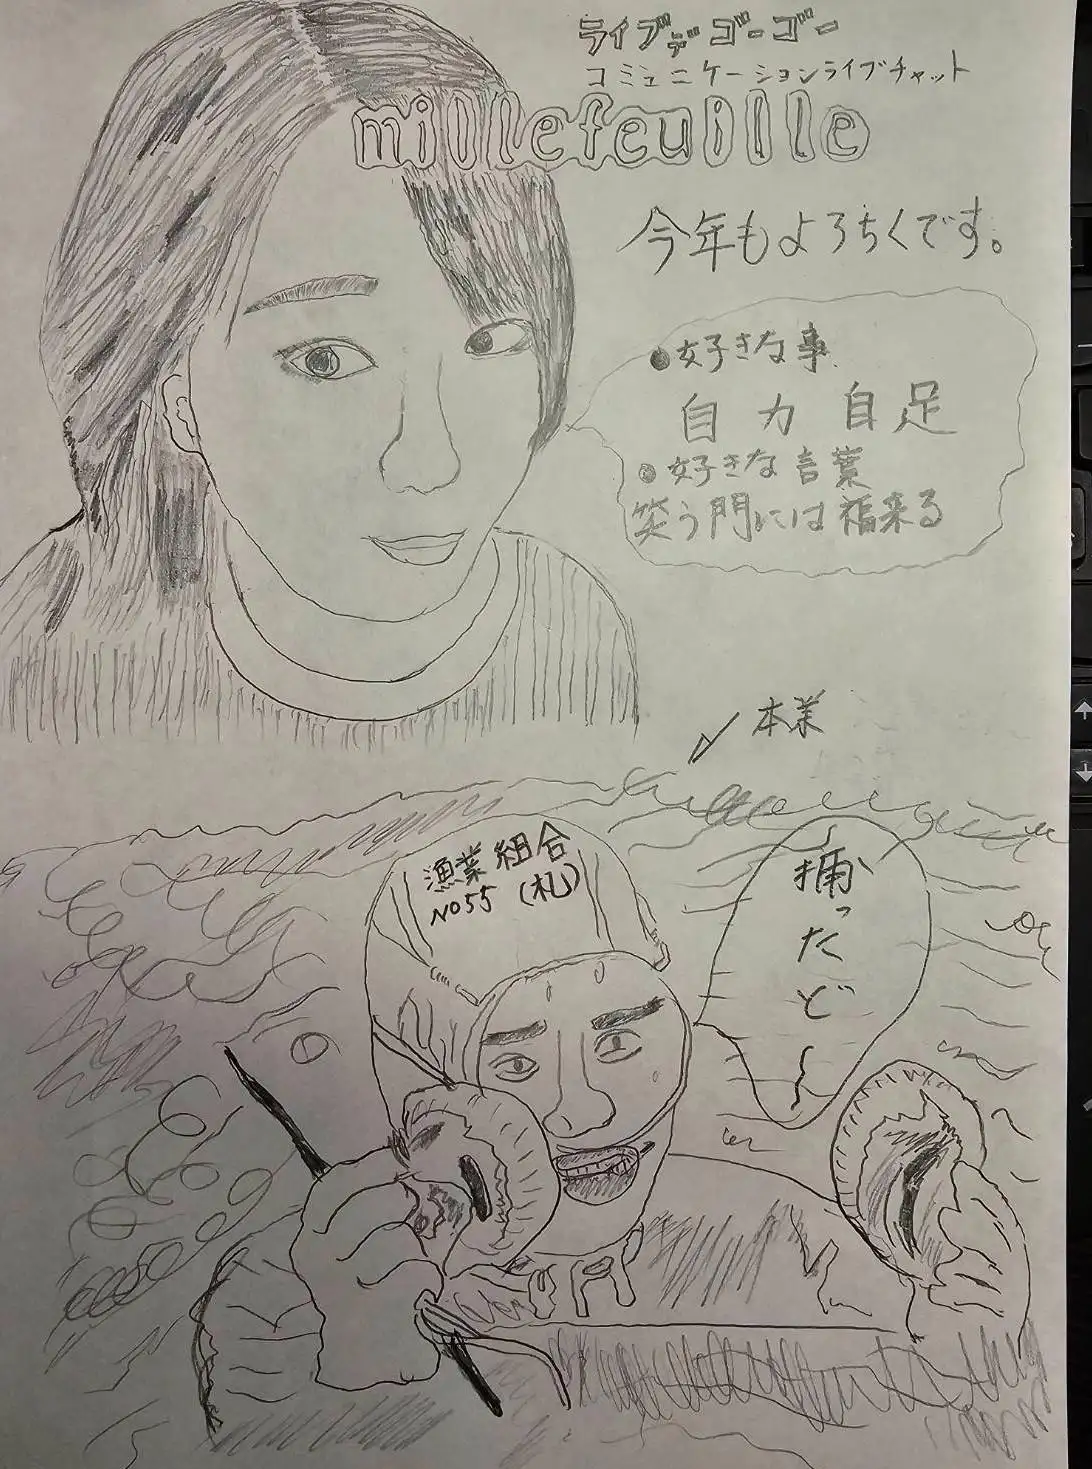 ライブデゴーゴー
コミュニケーションライブチャット
millefeuille
今年もよろちくです。
●好きな事
自力自足
●好きな言葉
笑う門には福来る
本業
漁業組合
NO55 (札)
捕ったど〜